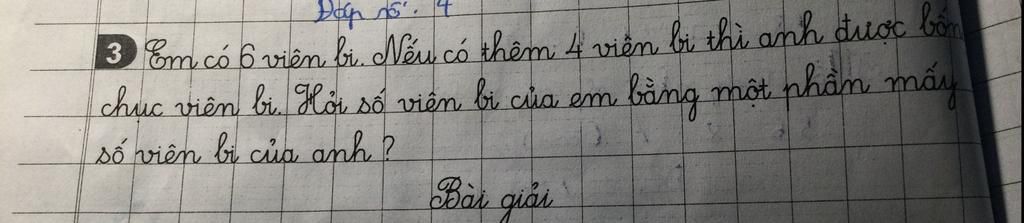 Đáp số: 4
3 Em có 6 viên bi. Nếu có thêm 4 viên bi thì anh được bốn
chục viên bi. Hỏi số viên bi của em bằng một phần mấy
số viên bi của anh?
Bài giải